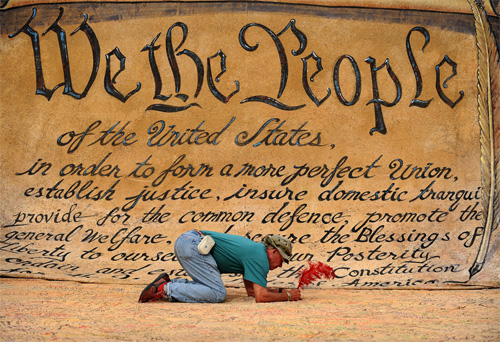 We the People
of the United States,
in order to form a more perfect Union,
establish justice, insure domestic tranqui
provide for the common defence, promote the
general Welfare, secure the Blessings of
liberty to ourse our Posterity
ordain and Constitution
America